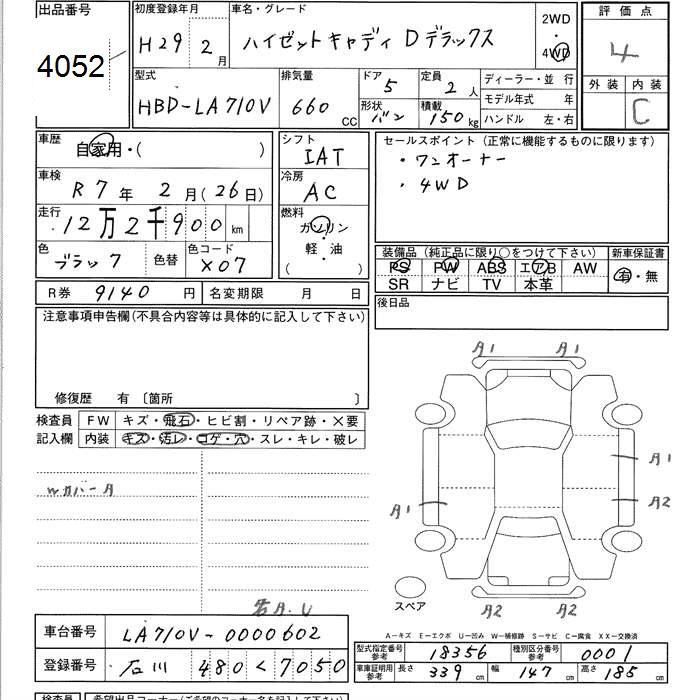 出品番号
4052
初度登録年月
H29 2月
車名・グレード
ハイゼットキャディ Dデラックス
2WD
・
4WD
評価点
4
外装 内装
C
型式
HBD-LA710V
排気量
660 CC
ドア
5
定員
2 人
形状
バン
積載
150 kg
ディーラー・並 行
モデル年式 年
ハンドル 左・右
車歴
自家用・( )
車検
R 7 年 2 月(26日)
走行
12万2千900 km
色
ブラック
色替
色コード
X07
シフト
IAT
冷房
AC
燃料
ガソリン
・
軽・油
( )
セールスポイント(正常に機能するものに限ります)
・ワンオーナー
・4WD
装備品(純正品に限り○をつけて下さい)
PS PW ABS エアB AW
SR ナビ TV 本革
新車保証書
有・無
後日品
R券 9140 円
名変期限 月 日
注意事項申告欄(不具合内容等は具体的に記入して下さい)
修復歴 有 〔箇所 〕
検査員
記入欄
FW キズ・飛石・ヒビ割・リペア跡・×要
内装 キズ・汚レ・コゲ・穴・スレ・キレ・破レ
Wカバー A
A1 A1
A1
A1
A2
A2 A2
スペア
A-キズ E-エクボ U-凹み W-補修跡 S-サビ C-腐食 XX-交換済
車台番号
LA710V-0000602
登録番号
石川 480 く 7050
型式指定番号
参考
18356
種別区分番号
参考
0001
車庫証明用
参考
長さ 339 cm
幅 147 cm
高さ 185 cm